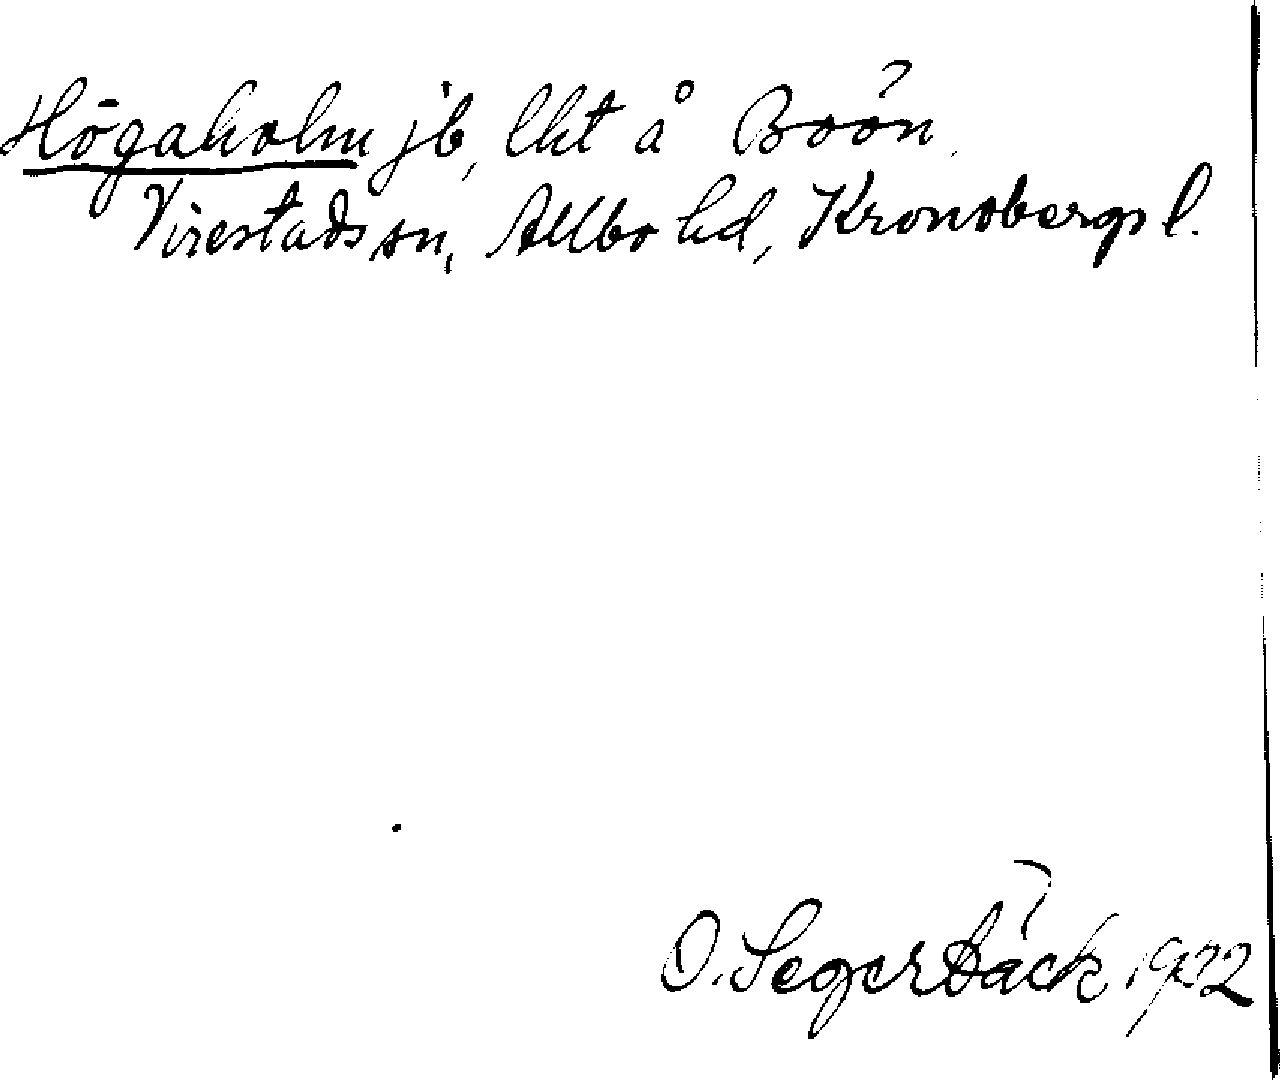 Högaholm jb, lht å Boön,
Virestads sn, Allbo hd, Kronobergs l.
O. Segerbäck 1922